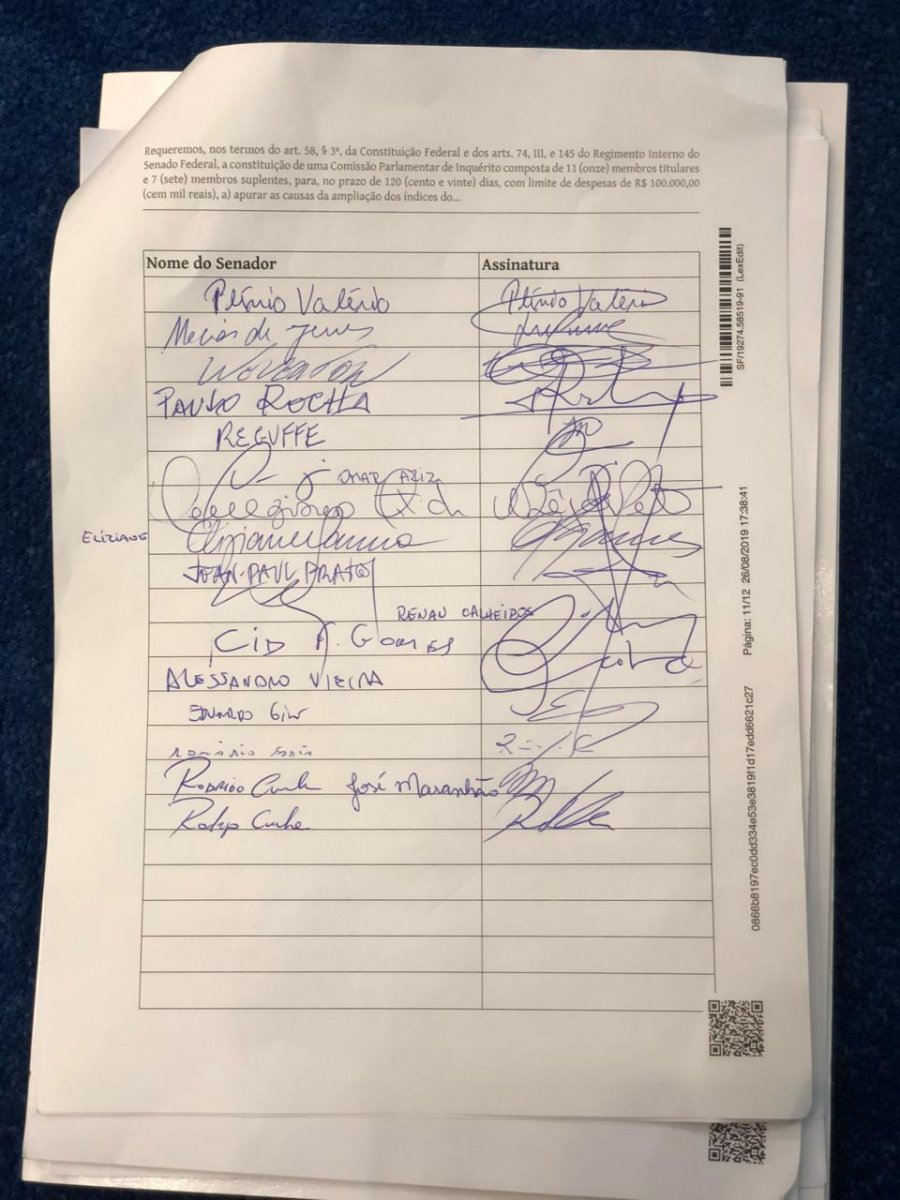 Requeremos, nos termos do art. 58, § 3º, da Constituição Federal e dos arts. 74, III, e 145 do Regimento Interno do
Senado Federal, a constituição de uma Comissão Parlamentar de Inquérito composta de 11 (onze) membros titulares
e 7 (sete) membros suplentes, para, no prazo de 120 (cento e vinte) dias, com limite de despesas de R$ 100.000,00
(cem mil reais), a) apurar as causas da ampliação dos índices do...
Nome do Senador Assinatura
Plínio Valério Plínio Valério
Mecias de Jesus
PAULO ROCHA
REGUFFE
OMAR AZIZ
ELIZIANE Eliziane Gama
JEAN-PAUL PRATES
RENAN CALHEIROS
CID F. GOMES
ALESSANDRO VIEIRA
EDUARDO Girão
Rodrigo Cunha José Maranhão
Rodrigo Cunha
SF/19274.58519-91 (LexEdit)
Página: 11/12 26/08/2019 17:38:41
0866b8197ec0dd334e53e3819f1d17edd6621c27